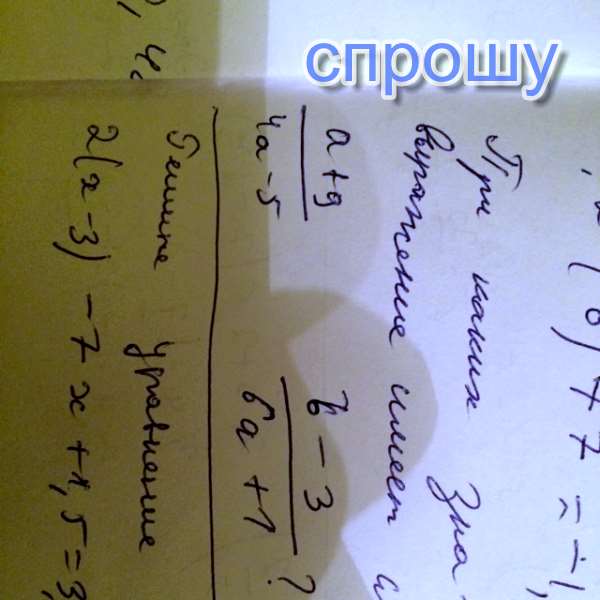 спрошу
(6) + 7 = -1,
При каких зна-
выражение имеет
a+9 / 4a-5   b-3 / 6a+1 ?
Решите уравнение
2(x-3) -7x+1,5=3,